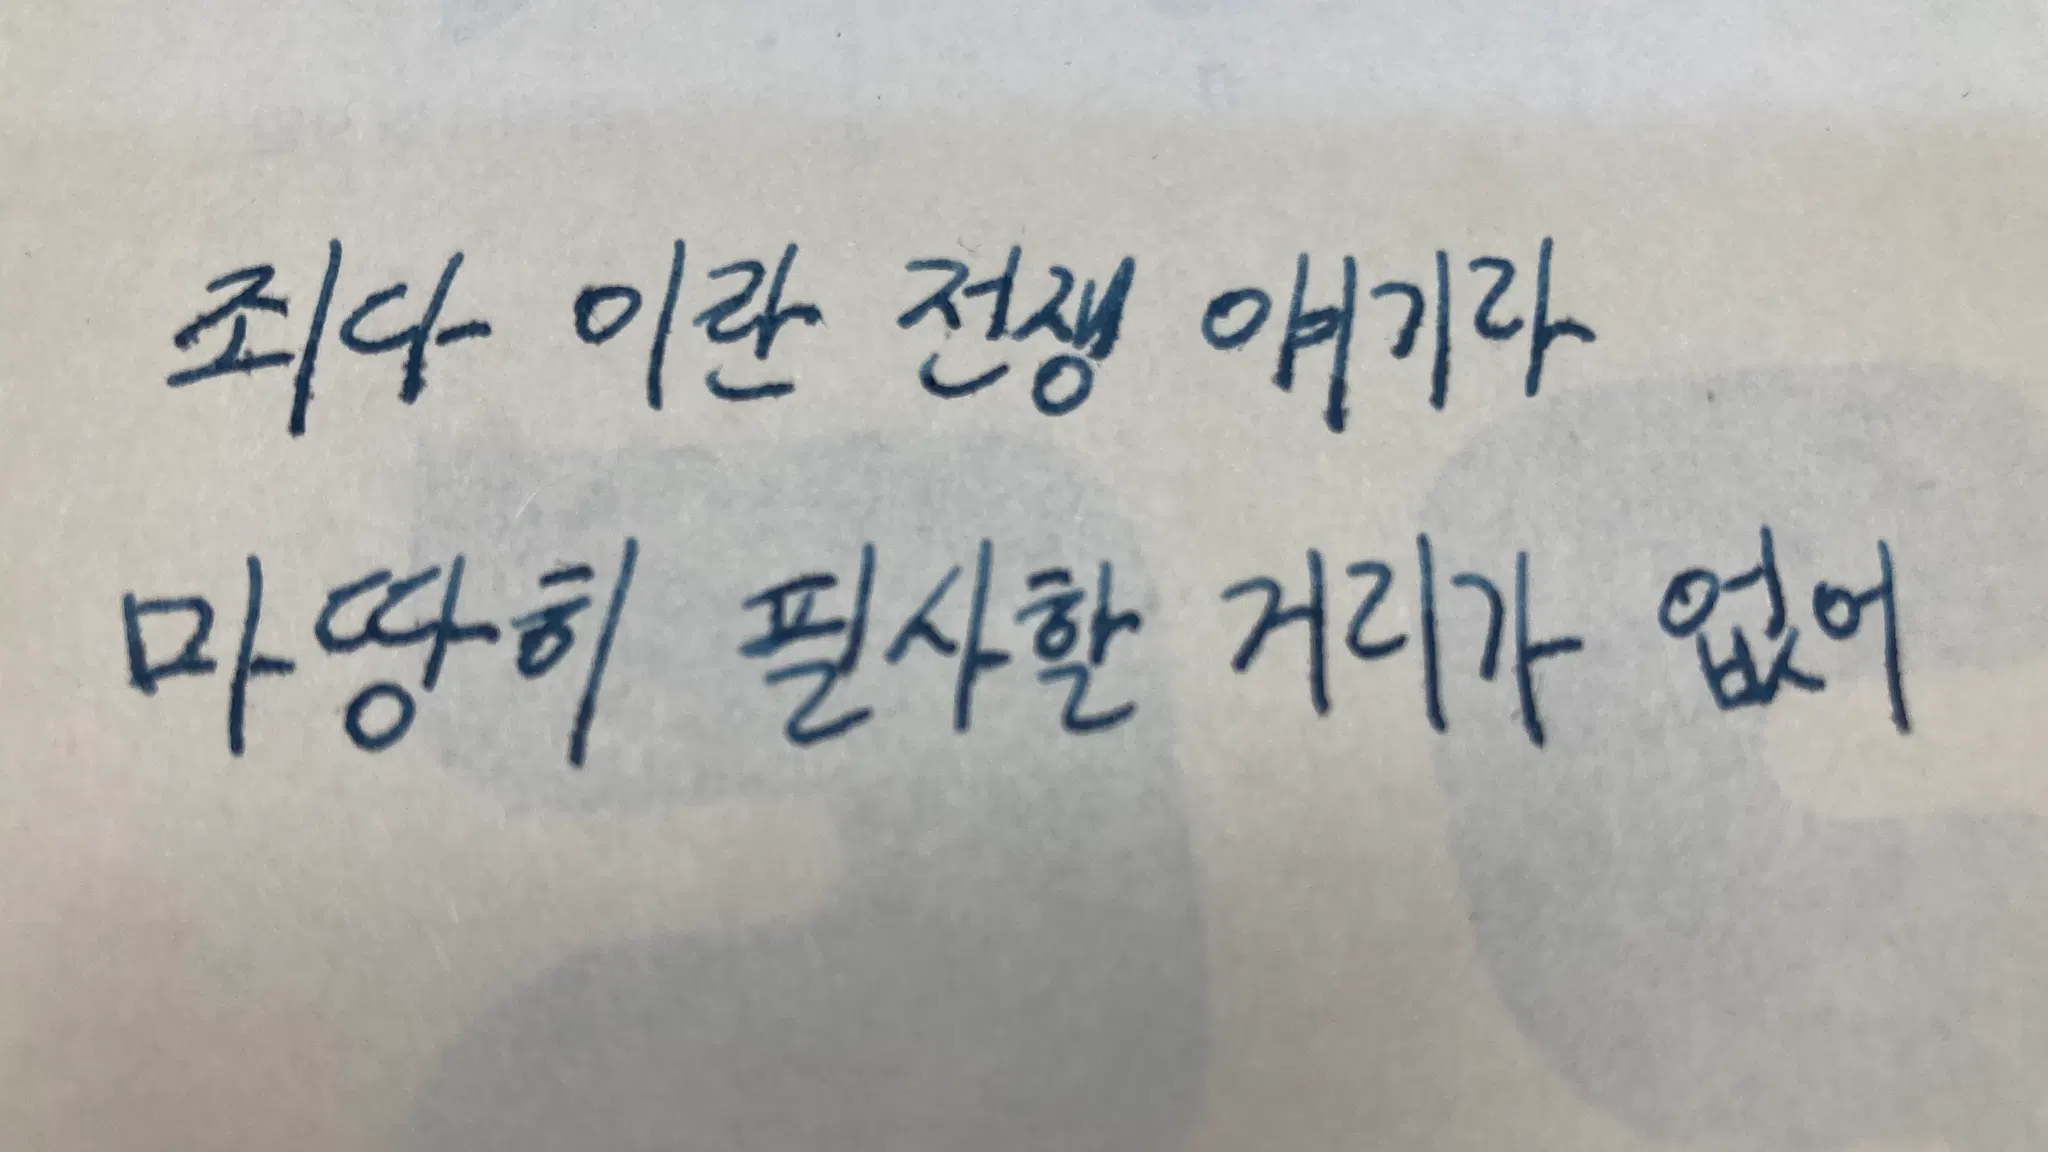 죄다 이란 전쟁 얘기라
마땅히 필사할 거리가 없어